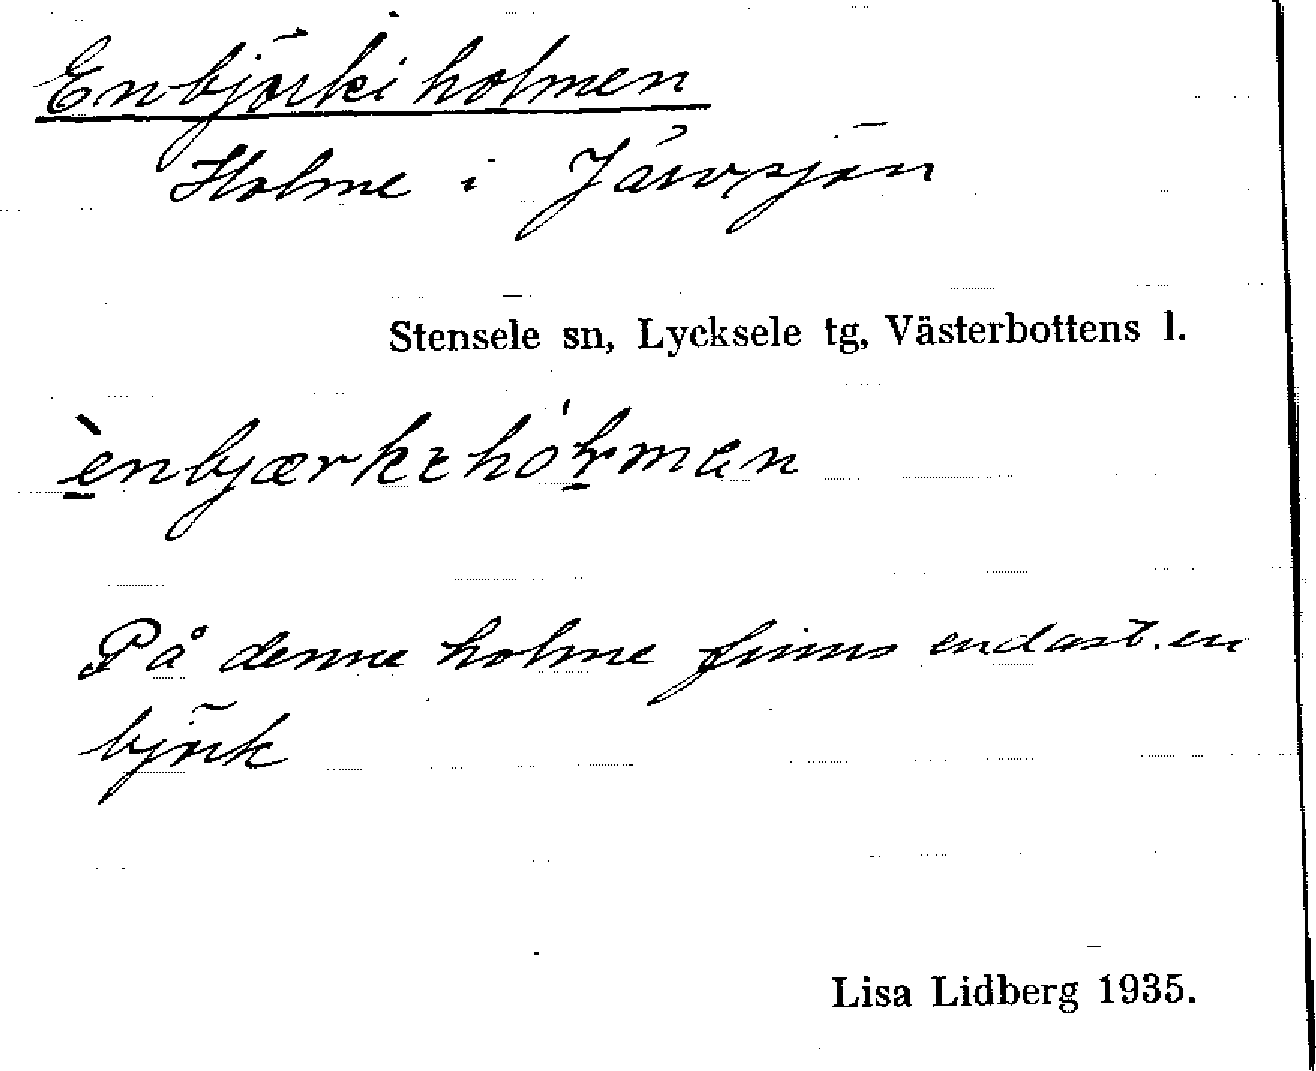 Enbjörkiholmen
Holme i Järvsjön
Stensele sn, Lycksele tg, Västerbottens l.
På denne holme finns endast en
björk
Lisa Lidberg 1935.